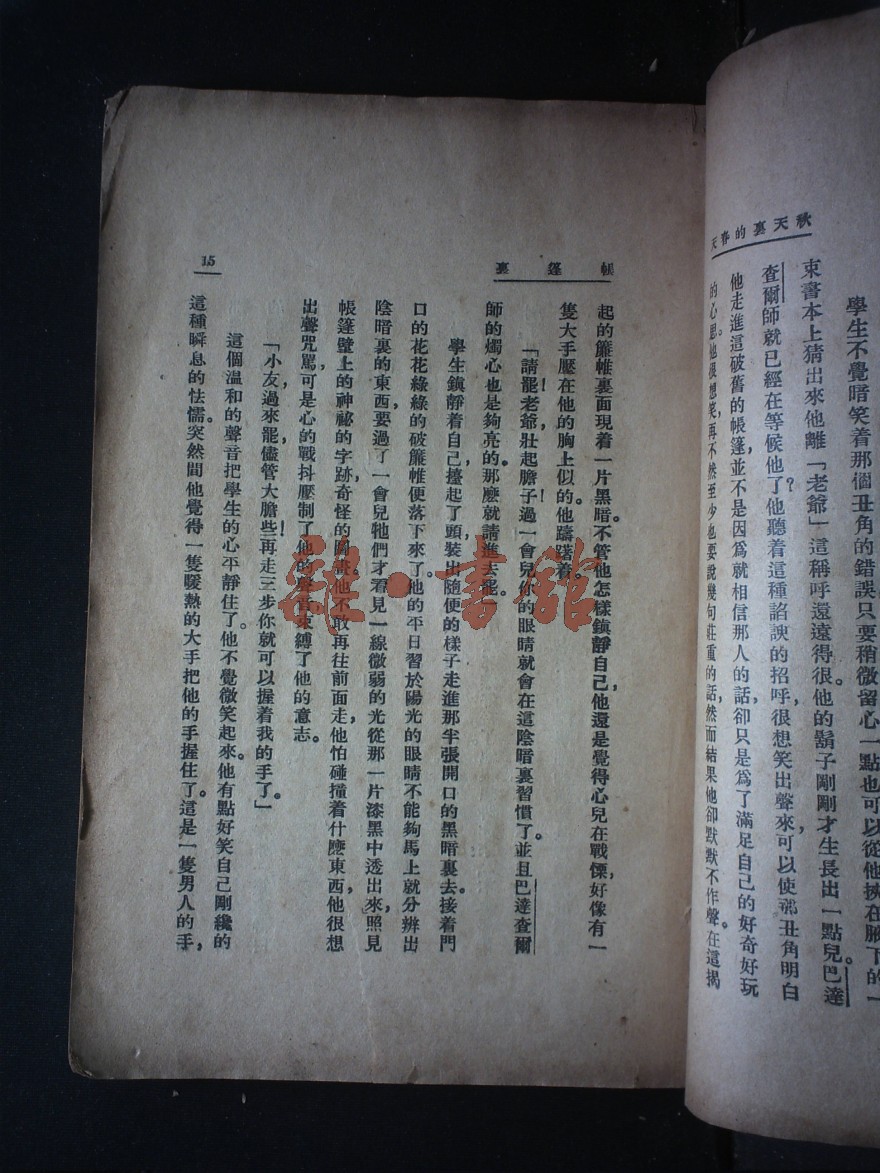 秋天裏的春天
學生不覺暗笑着那個丑角的錯誤只要稍微留心一點也可以從他挾在腋下的一
束書本上猜出來他離「老爺」這稱呼還遠得很。他的鬍子剛剛才生長出一點兒。巴達
查爾師就已經在等候他了?他聽着這種諂諛的招呼,很想笑出聲來,可以使那丑角明白
他走進這破舊的帳篷,並不是因爲就相信那人的話,卻只是爲了滿足自己的好奇好玩
的心思。他很想笑,再不然至少也要說幾句莊重的話,然而結果他卻默默不作聲。在這揭
帳篷裏
15
起的簾帷裏面現着一片黑暗。不管他怎樣鎮靜自己,他還是覺得心兒在戰慄,好像有一
隻大手壓在他的胸上似的。他躊躇着。
「請罷!老爺,壯起膽子!過一會兒,你的眼睛就會在這陰暗裏習慣了。並且巴達查爾
師的燭心也是夠亮的。那麽就請進去罷。」
學生鎮靜着自己,擡起了頭,裝出隨便的樣子走進那半張開口的黑暗裏去。接着門
口的花花綠綠的破簾帷便落下來了。他的平日習於陽光的眼睛不能夠馬上就分辨出
陰暗裏的東西,要過了一會兒牠們才看見一線微弱的光從那一片漆黑中透出來,照見
帳篷壁上的神祕的字跡,奇怪的圖畫。他不敢再往前面走,他怕碰撞着什麽東西,他很想
出聲咒罵,可是心的戰抖壓制了他的聲音,束縛了他的意志。
「小友,過來罷,儘管大膽些!再走三步,你就可以握着我的手了。」
這個溫和的聲音把學生的心平靜住了。他不覺微笑起來。他有點好笑自己剛纔的
這種瞬息的怯懦。突然間他覺得一隻暖熱的大手把他的手握住了。這是一隻男人的手,
雜·書館